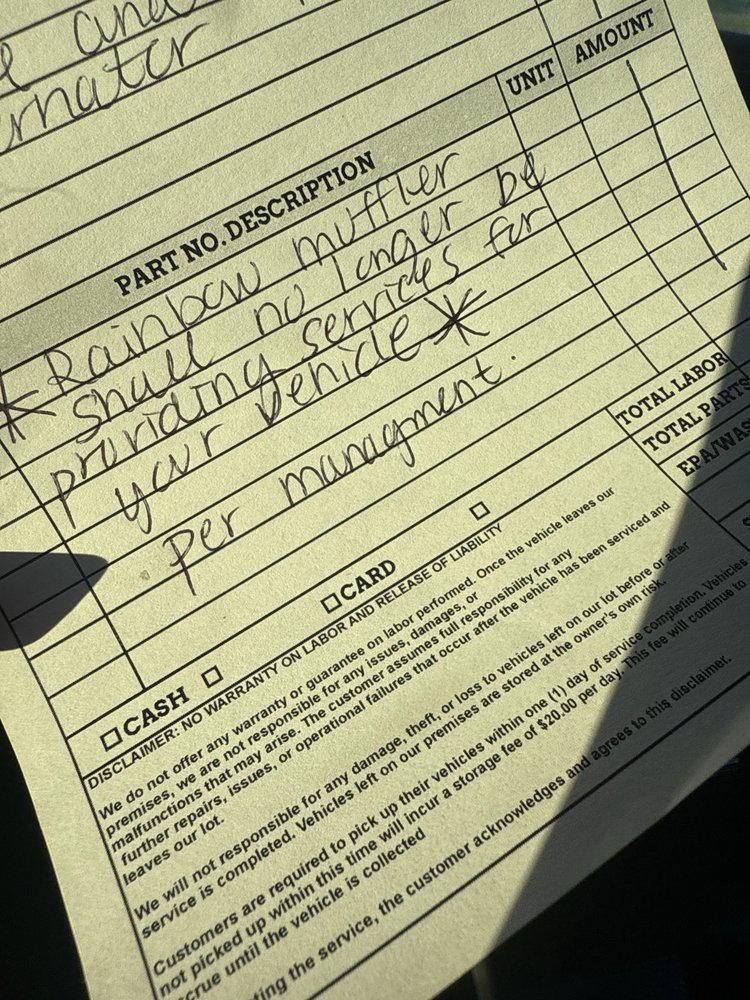 and
AMOUNT
UNIT
PART NO. DESCRIPTION
*Rainbow muffler
shall no longer be
providing services for
your vehicle*
per managment.
TOTAL LABOR
TOTAL PARTS
EPA/WAS
☐CASH ☐ ☐CARD ☐
DISCLAIMER: NO WARRANTY ON LABOR AND RELEASE OF LIABILITY
We do not offer any warranty or guarantee on labor performed. Once the vehicle leaves our
premises, we are not responsible for any issues, damages, or
malfunctions that may arise. The customer assumes full responsibility for any
further repairs, issues, or operational failures that occur after the vehicle has been serviced and
leaves our lot.
We will not responsible for any damage, theft, or loss to vehicles left on our lot before or after
service is completed. Vehicles left on our premises are stored at the owner's own risk.
Customers are required to pick up their vehicles within one (1) day of service completion. Vehicles
not picked up within this time will incur a storage fee of $20.00 per day. This fee will continue to
crue until the vehicle is collected
ting the service, the customer acknowledges and agrees to this disclaimer.